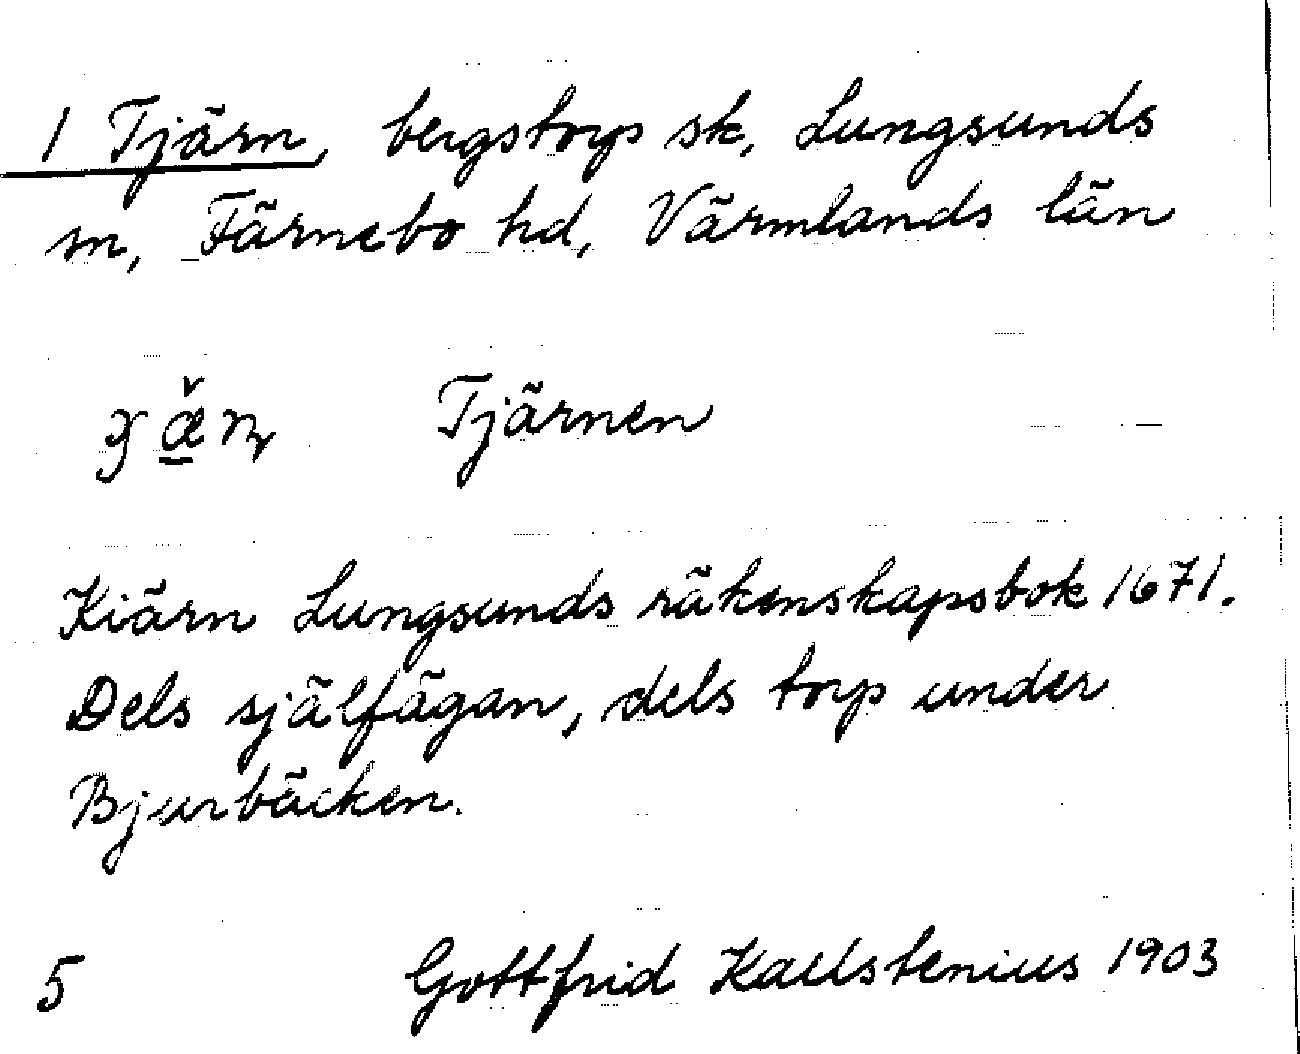 1 Tjärn, bergstorps sk, Lungsunds
sn, Färnebo hd, Värmlands län
Tjärnen
Kiärn Lungsunds räkenskapsbok 1671.
Dels själfägan, dels torp under
Bjurbäcken.
5 Gottfrid Kallstenius 1903